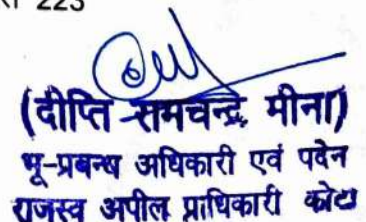 223
(दीप्ति रामचन्द्र मीना)
भू-प्रबन्ध अधिकारी एवं पदेन
राजस्व अपील प्राधिकारी कोटा